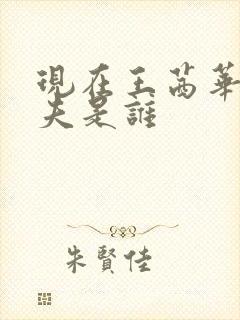 現在王茜華
夫是誰
朱賢佳